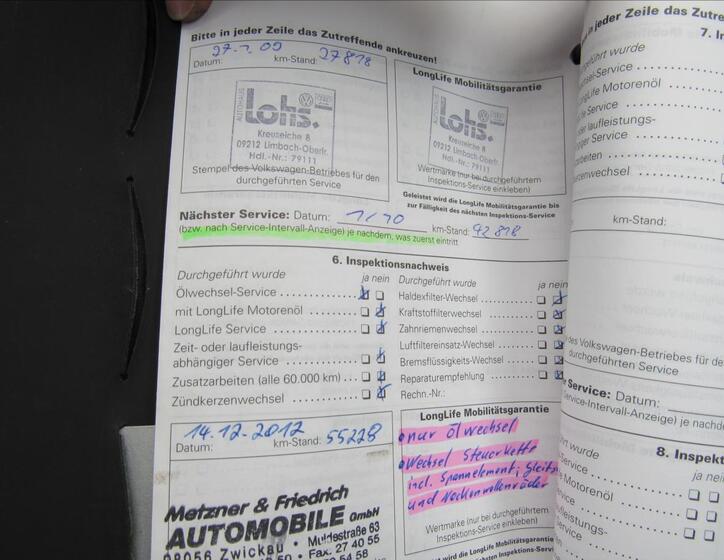 Bitte in jeder Zeile das Zutreffende ankreuzen!
27.1.09 27818
Datum: km-Stand:
AUTOHAUS
Lohs.
Kreuzeiche 8
09212 Limbach-Oberfr.
Hdl.-Nr.: 79111
Stempel des Volkswagen-Betriebes für den
durchgeführten Service
LongLife Mobilitätsgarantie
AUTOHAUS
Lohs.
Kreuzeiche 8
09212 Limbach-Oberfr.
Hdl.-Nr.: 79111
Wertmarke (nur bei durchgeführtem
Inspektions-Service einkleben)
Geleistet wird die LongLife Mobilitätsgarantie bis
zur Fälligkeit des nächsten Inspektions-Service
Nächster Service: Datum: 1/10 km-Stand: 42818
(bzw. nach Service-Intervall-Anzeige) je nachdem, was zuerst eintritt
6. Inspektionsnachweis
Durchgeführt wurde ja nein
Ölwechsel-Service
mit LongLife Motorenöl
LongLife Service
Zeit- oder laufleistungs-
abhängiger Service
Zusatzarbeiten (alle 60.000 km)
Zündkerzenwechsel
Durchgeführt wurde ja nein
Haldexfilter-Wechsel
Kraftstoffilterwechsel
Zahnriemenwechsel
Luftfiltereinsatz-Wechsel
Bremsflüssigkeits-Wechsel
Reparaturempfehlung
Rechn.-Nr.:
14.12.2012 55228
Datum: km-Stand:
Metzner & Friedrich
AUTOMOBILE GmbH
08056 Zwickau Muldestraße 63
Fax. 27 40 55
LongLife Mobilitätsgarantie
nur Ölwechsel
Wechsel Steuerkette
incl. Spannelement,
und Nockenwellenräder
Wertmarke (nur bei durchgeführtem
Inspektions-Service einkleben)
in jeder Zeile das Zutreffende
7.
geführt wurde
LongLife Motorenöl
Service
oder laufleistungs-
Service
km-Stand:
des Volkswagen-Betriebes für den
durchgeführten Service
Service: Datum:
Service-Intervall-Anzeige) je nachdem
8. Inspekt
führt wurde ja nein
Service
Motorenöl
Service